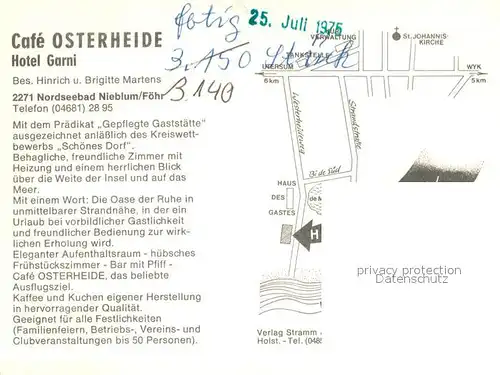 fotig
25. Juli 1975
3.150 Stück
B 140
Café OSTERHEIDE
Hotel Garni
Bes. Hinrich u. Brigitte Martens
2271 Nordseebad Nieblum/Föhr
Telefon (04681) 28 95
Mit dem Prädikat „Gepflegte Gaststätte"
ausgezeichnet anläßlich des Kreiswett-
bewerbs „Schönes Dorf".
Behagliche, freundliche Zimmer mit
Heizung und einem herrlichen Blick
über die Weite der Insel und auf das
Meer.
Mit einem Wort: Die Oase der Ruhe in
unmittelbarer Strandnähe, in der ein
Urlaub bei vorbildlicher Gastlichkeit
und freundlicher Bedienung zur wirk-
lichen Erholung wird.
Eleganter Aufenthaltsraum - hübsches
Frühstückszimmer - Bar mit Pfiff -
Café OSTERHEIDE, das beliebte
Ausflugsziel.
Kaffee und Kuchen eigener Herstellung
in hervorragender Qualität.
Geeignet für alle Festlichkeiten
(Familienfeiern, Betriebs-, Vereins- und
Clubveranstaltungen bis 50 Personen).
VERWALTUNG
St. JOHANNIS-
KIRCHE
TANKSTELLE
UTERSUM
WYK
6 km
5 km
Westerheideweg
Strandstraße
Bi de Süd
HAUS
DES
GASTES
de
H
privacy protection
Datenschutz
Verlag Stramm
Holst. - Tel. (048